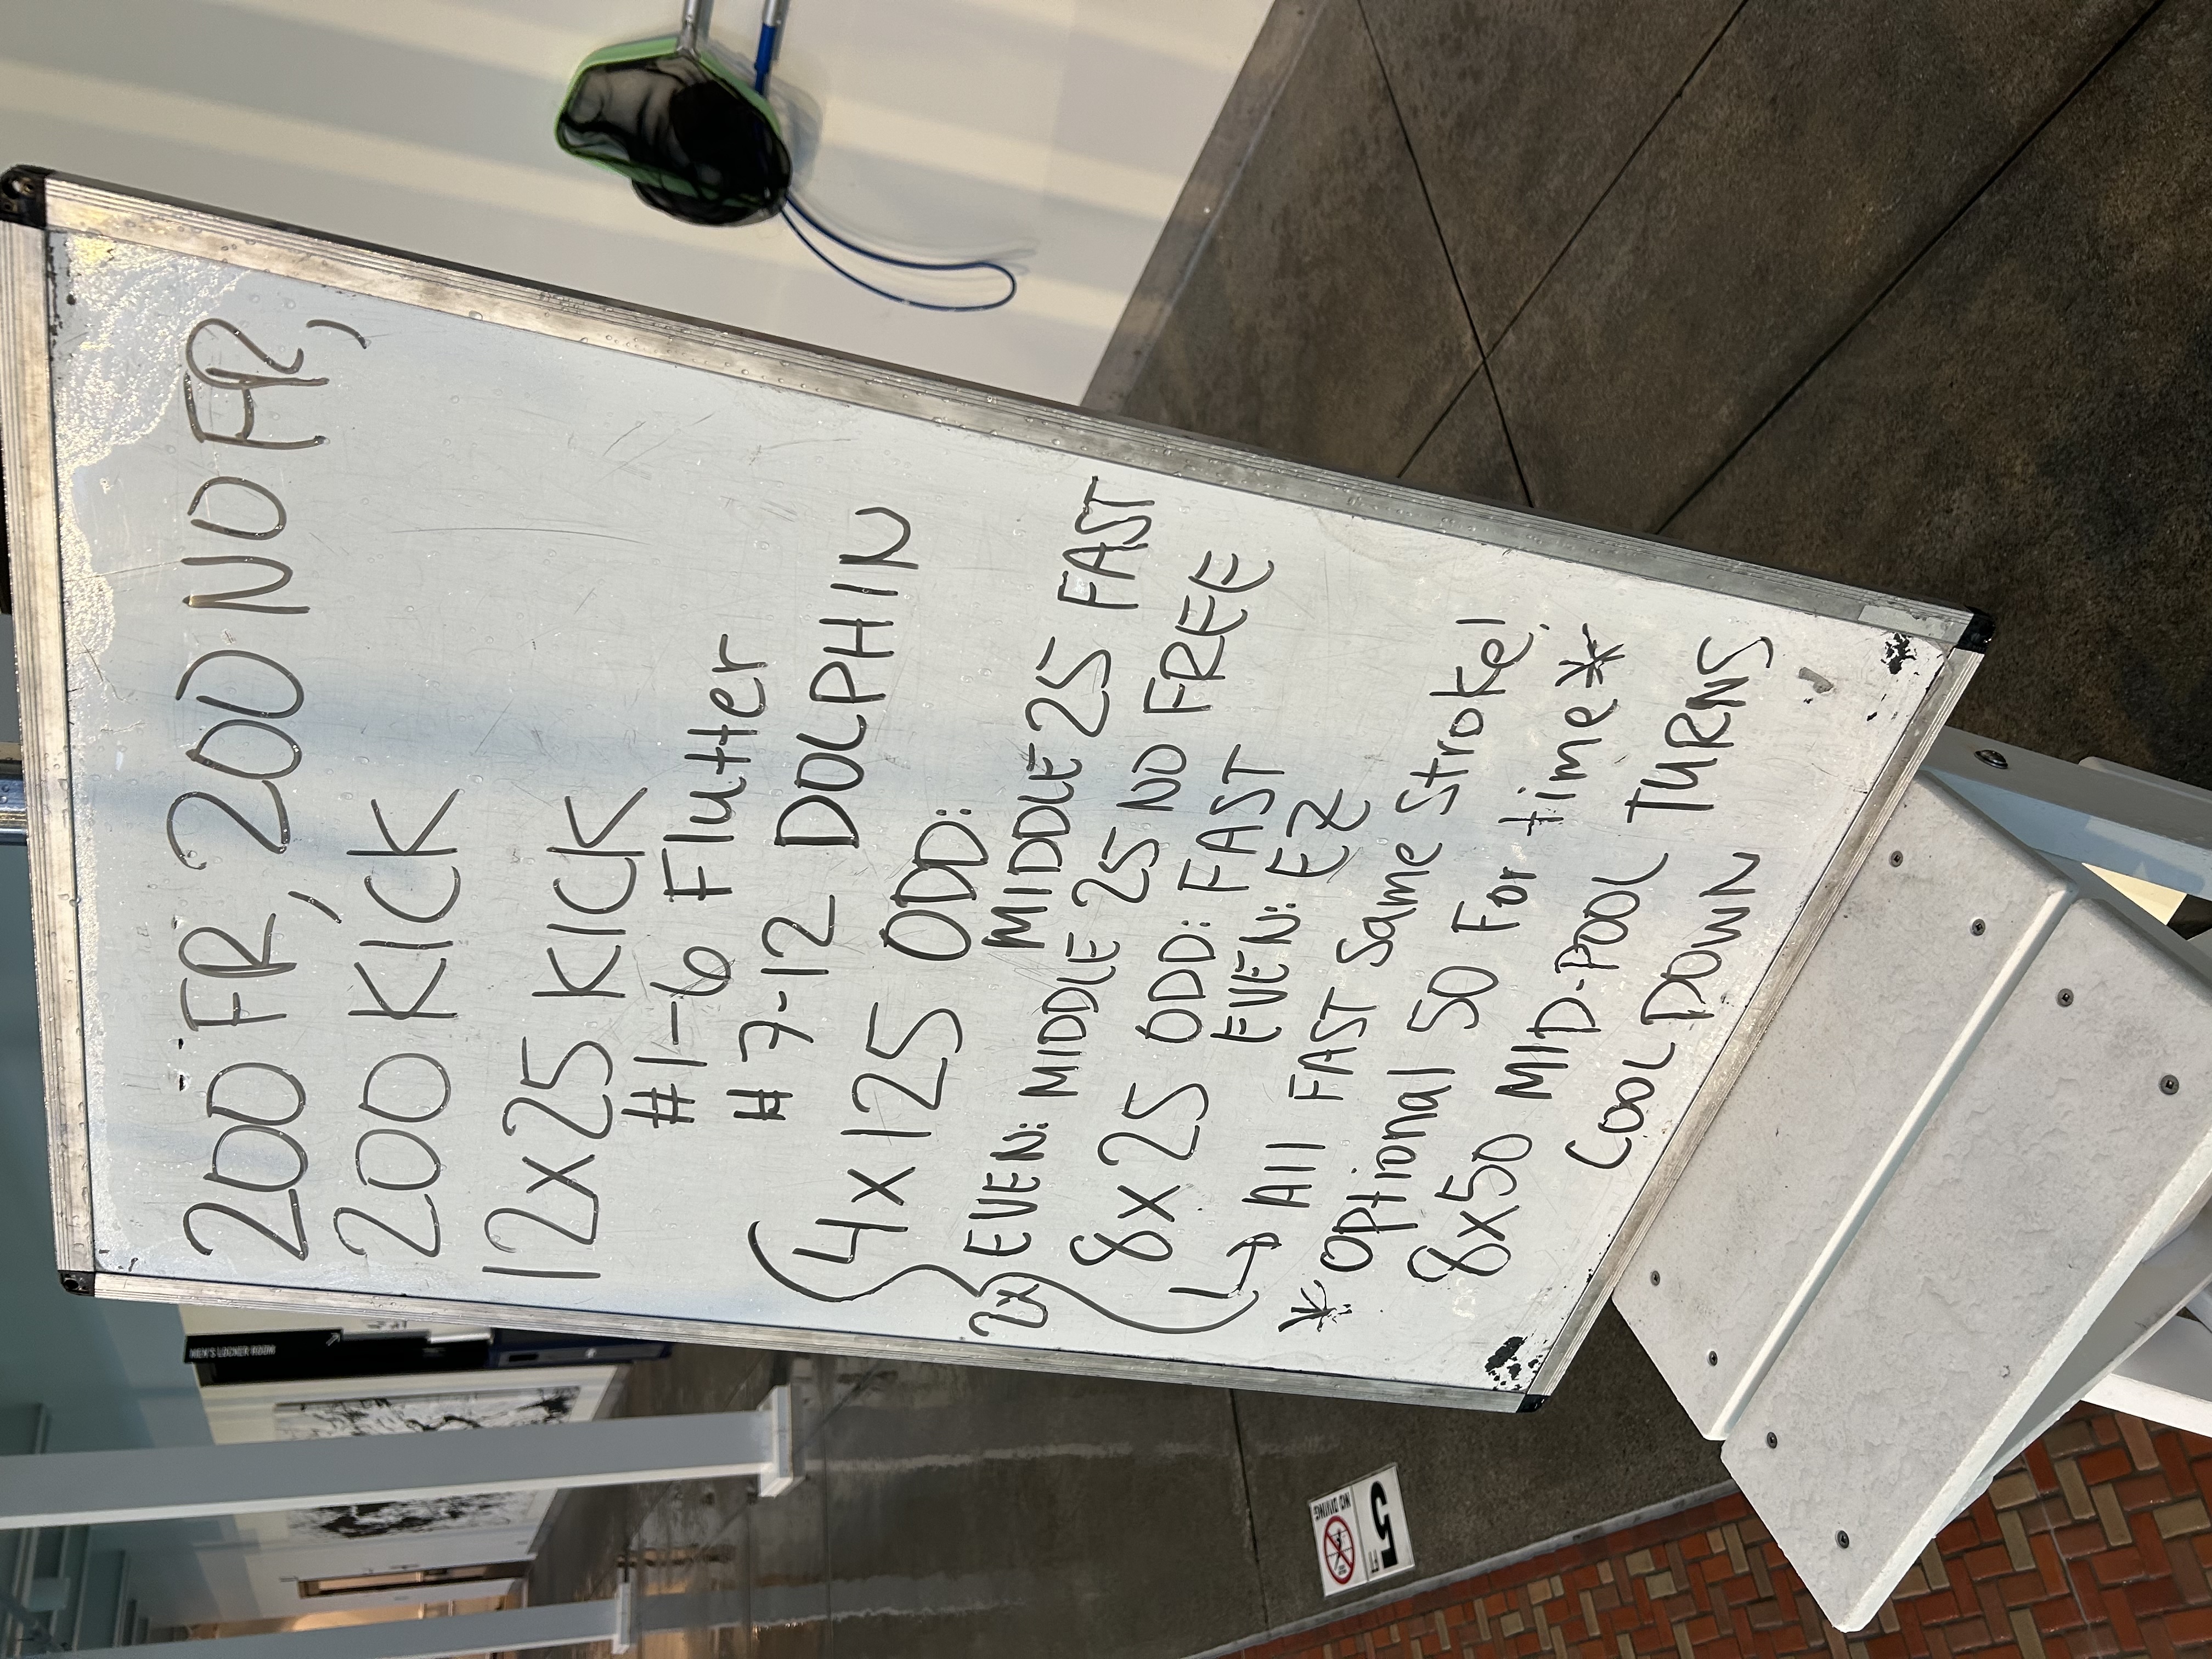 200 FR, 200 NO FR,
200 KICK
12x25 KICK
#1-6 Flutter
#7-12 DOLPHIN
4x125 ODD:
MIDDLE 25 FAST
2x EVEN: MIDDLE 25 NO FREE
8x25 ODD: FAST
EVEN: EZ
↳ All FAST Same Stroke!
*Optional 50 For time*
8x50 MID-POOL TURNS
COOL DOWN
MEN'S LOCKER ROOM
5 FT
NO DIVING